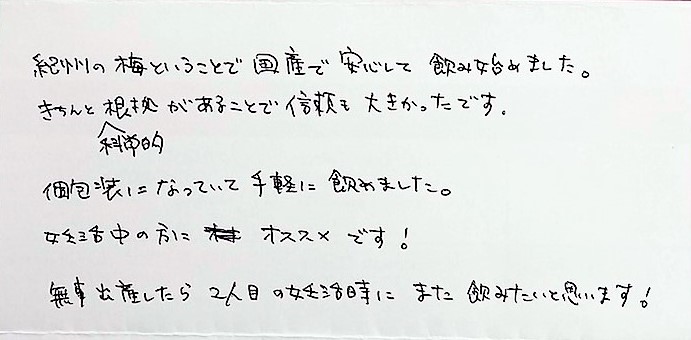 紀州の梅ということで国産で安心して飲み始めました。
きちんと根拠があることで信頼も大きかったです。
科学的
個包装になっていて手軽に飲めました。
妊活中の方に オススメです！
無事出産したら2人目の妊活時にまた飲みたいと思います！